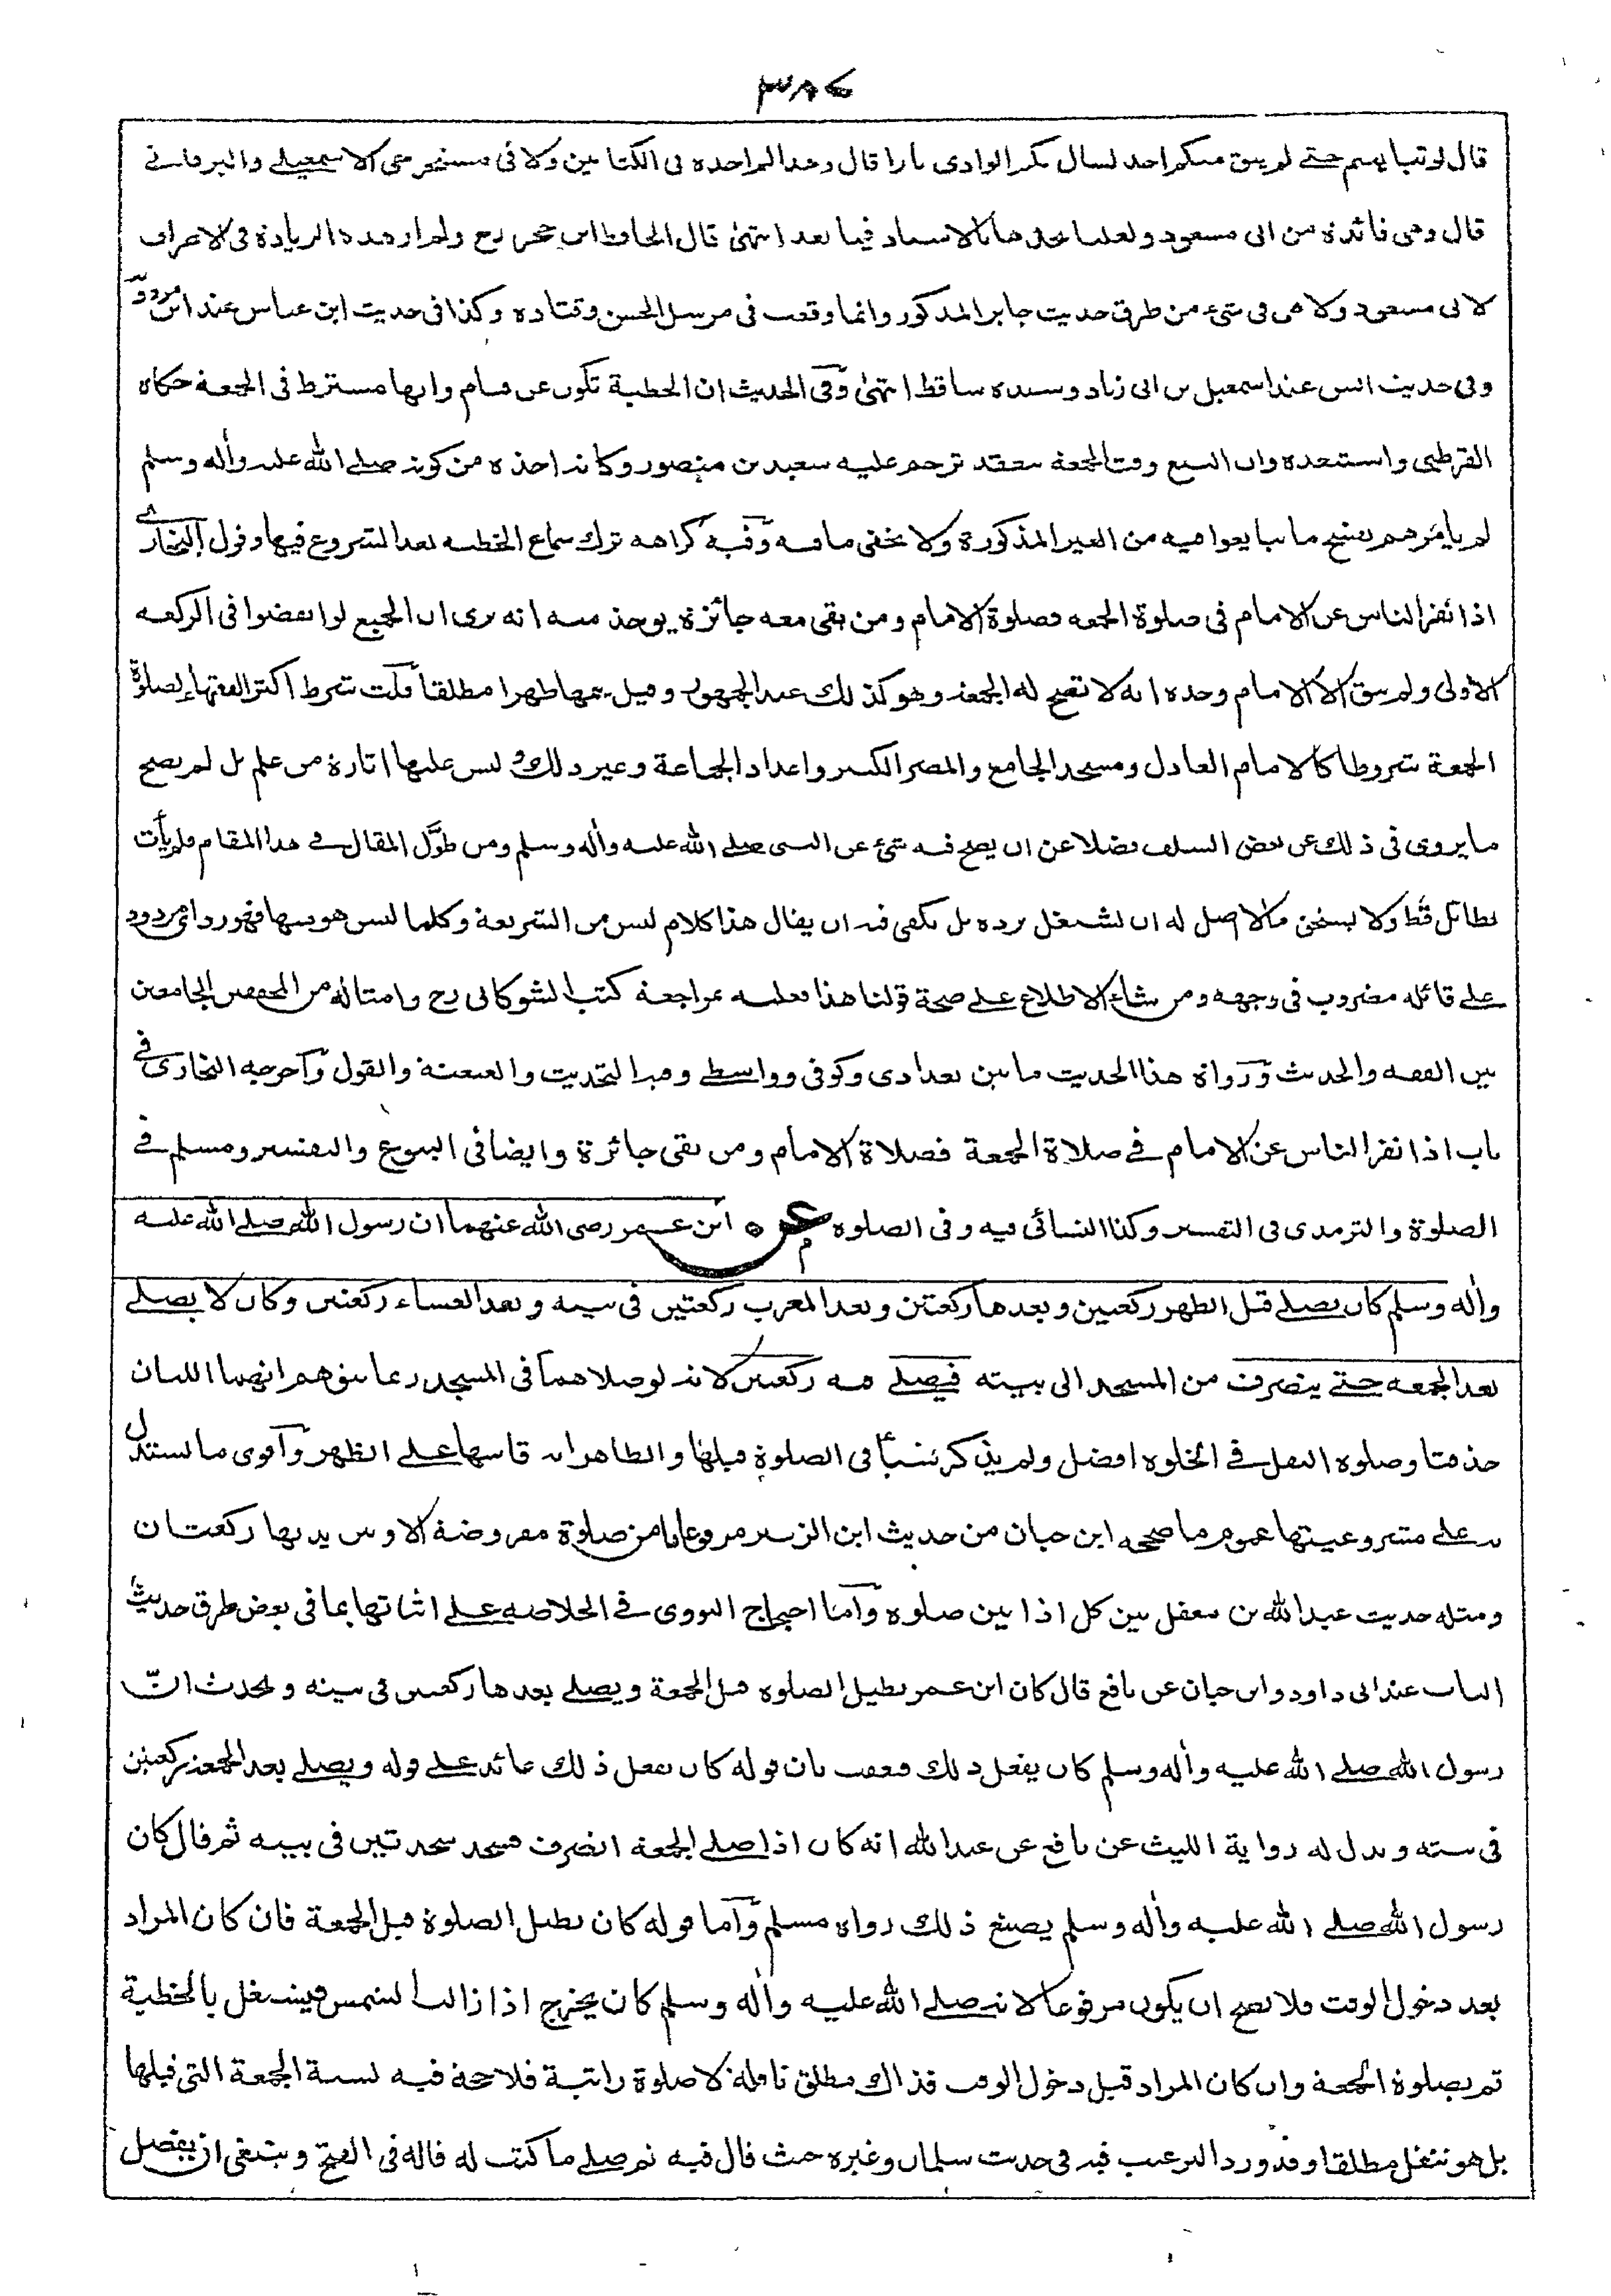 ٣٨٤
قال لو تبايعتم حتے لم يبق منكم احد لسال بكم الوادى نارا قال وهذا لم اجده فى الكتابين ولا فى مستخرجى الاسمعيلے والبرقانے
قال وهى فائدة من ابى مسعود ولعلنا نجدها بالاسناد فيما بعد انتهىٰ قال الحافظ ابن حجر رح ولم ار هذه الزيادة فى الاطراف
لابى مسعود ولا هى فى شئ من طرق حديث جابر المذكور وانما وقعت فى مرسل الحسن وقتاده وكذا فى حديث ابن عباس عند ابن مردويه
وفى حديث انس عند اسمعيل بن ابى زياد وسنده ساقط انتهىٰ وفى الحديث ان الخطبة تكون عن قيام وانها مشترط فى الجمعة حكاه
القرطبى واستبعده وان البيع وقت الجمعة ينعقد ترجم عليه سعيد بن منصور وكانه اخذه من كونه صلے الله عليه وأله وسلم
لم يأمرهم بفسخ ما تبايعوا فيه من العير المذكورة ولا يخفى ما فيه وفيه كراهه ترك سماع الخطبه بعد الشروع فيها وقول البخارى
اذا نفر الناس عن الامام فى صلوة الجمعه فصلوة الامام ومن بقى معه جائزة يوخذ منه انه يرى ان الجميع لو انفضوا فى الركعه
الاولى ولم يبق الا الامام وحده انه لا تصح له الجمعة وهو كذلك عند الجمهور وقيل يتمها ظهرا مطلقا قلت شرط اكثر الفقهاء لصلوة
الجمعة شروطا كالامام العادل ومسجد الجامع والمصر الكبير واعداد الجماعة وغير ذلك وليس عليها اثارة من علم بل لم يصح
ما يروى فى ذلك عن بعض السلف فضلا عن ان يصح فيه شئ عن النبى صلے الله عليه وأله وسلم ومن طوّل المقال فے هذا المقام فلم يأت
بطائل قط ولا يستحق ما لا اصل له ان يشتغل برده بل يكفى فيه ان يقال هذا كلام ليس من الشريعة وكلما ليس هو منها فهو رد اى مردود
علے قائله مضروب فى وجهه ومن شاء الاطلاع علے صحة قولنا هذا فعليه بمراجعة كتب الشوكانى رح وامثاله من المحققين الجامعين
بين الفقه والحديث ورواة هذا الحديث ما بين بغدادى وكوفى وواسطے وفيه التحديث والعنعنة والقول وأخرجه البخارى فے
باب اذا نفر الناس عن الامام فے صلاة الجمعة فصلاة الامام ومن بقى جائزة وايضا فى البيوع والتفسير ومسلم فے
الصلوة والترمذى فى التفسير وكذا النسائى فيه وفى الصلوه عن ابن عمر رضى الله عنهما ان رسول الله صلے الله عليه
وأله وسلم كان يصلے قبل الظهر ركعتين وبعدها ركعتين وبعد المغرب ركعتين فى بيته وبعد العشاء ركعتين وكان لا يصلے
بعد الجمعه حتے ينصرف من المسجد الى بيته فيصلے فيه ركعتين لانه لو صلاهما فى المسجد ربما يتوهم انهما اللتان
حذفتا وصلوه النفل فے الخلوه افضل ولم يذكر شيأ فى الصلوة قبلها والظاهر انه قاسها علے الظهر وأقوى ما يستدل
به علے مشروعيتها عموم ما صححه ابن حبان من حديث ابن الزبير مرفوعا ما من صلوة مفروضة الا وبين يديها ركعتان
ومثله حديث عبد الله بن مغفل بين كل اذانين صلوه وأما احتجاج النووى فے الخلاصه علے اثباتها بما فى بعض طرق حديث
الباب عند ابى داود وابن حبان عن نافع قال كان ابن عمر يطيل الصلوه قبل الجمعة ويصلے بعدها ركعتين فى بيته ويحدث انّ
رسول الله صلے الله عليه وأله وسلم كان يفعل ذلك فتعقب بان قوله كان يفعل ذلك عائد علے قوله ويصلے بعد الجمعة ركعتين
فى بيته ويدل له رواية الليث عن نافع عن عبد الله انه كان اذا صلے الجمعة انصرف فسجد سجدتين فى بيته ثم قال كان
رسول الله صلے الله عليه وأله وسلم يصنع ذلك رواه مسلم وأما قوله كان يطيل الصلوة قبل الجمعة فان كان المراد
بعد دخول الوقت فلا يصح ان يكون مرفوعا لانه صلے الله عليه وأله وسلم كان يخرج اذا زالت الشمس فيشتغل بالخطبة
ثم بصلوة الجمعة وان كان المراد قبل دخول الوقت فذاك مطلق نافلة لا صلوة راتبة فلا حجة فيه لسنة الجمعة التى قبلها
بل هو تنفل مطلقا وقد ورد الترغيب فيه فى حديث سلمان وغيره حيث قال فيه ثم صلے ما كتب له قاله فى الفتح وينبغى ان يفصل